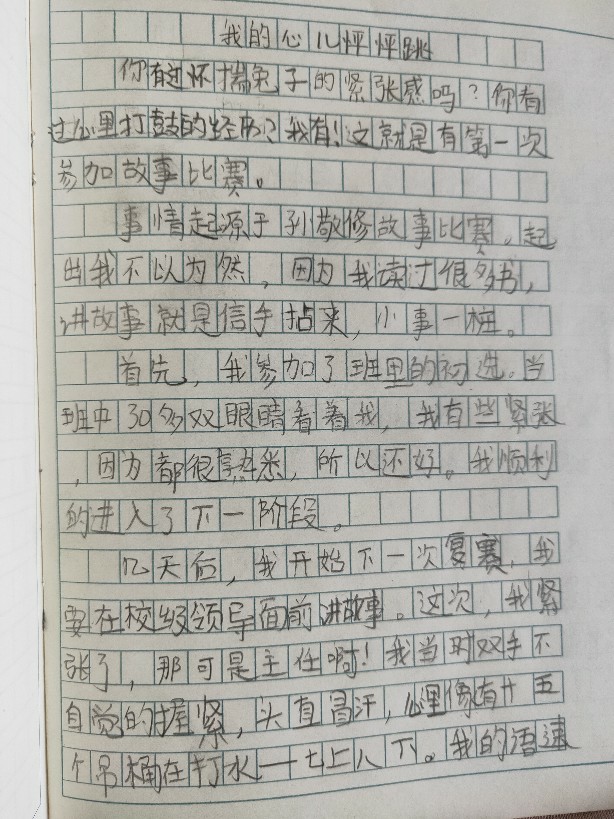 我的心儿怦怦跳
你有过怀揣兔子的紧张感吗？你有
过心里打鼓的经历？我有！这就是有第一次
参加故事比赛。
事情起源于孙敬修故事比赛。起
出我不以为然，因为我读过很多书，
讲故事就是信手拈来，小事一桩。
首先，我参加了班里的初选。当
班中30多双眼睛看着我，我有些紧张
，因为都很熟悉，所以还好。我顺利
的进入了下一阶段。
几天后，我开始下一次复赛，我
要在校级领导面前讲故事。这次，我紧
张了，那可是主任啊！我当时双手不
自觉的握紧，头直冒汗，心里像有十五
个吊桶在打水一七上八下。我的语速